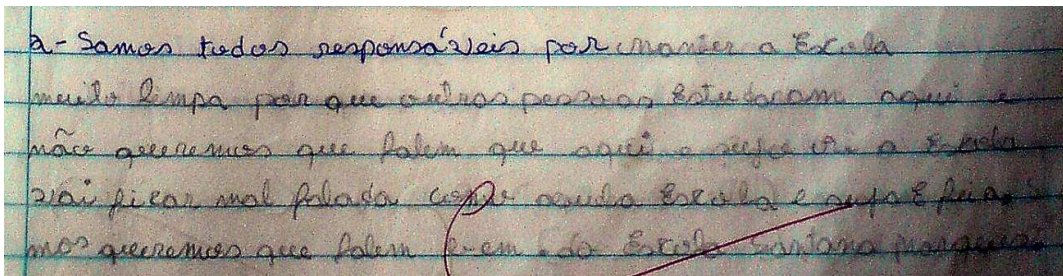 a- Somos todos responsáveis por manter a Escola
muito limpa por que outras pessoas Estudaram aqui e
não queremos que falem que aqui e a Escola
vai ficar mal falada como aquela Escola e suja E feia.
nos queremos que falem bem da Escola Santana